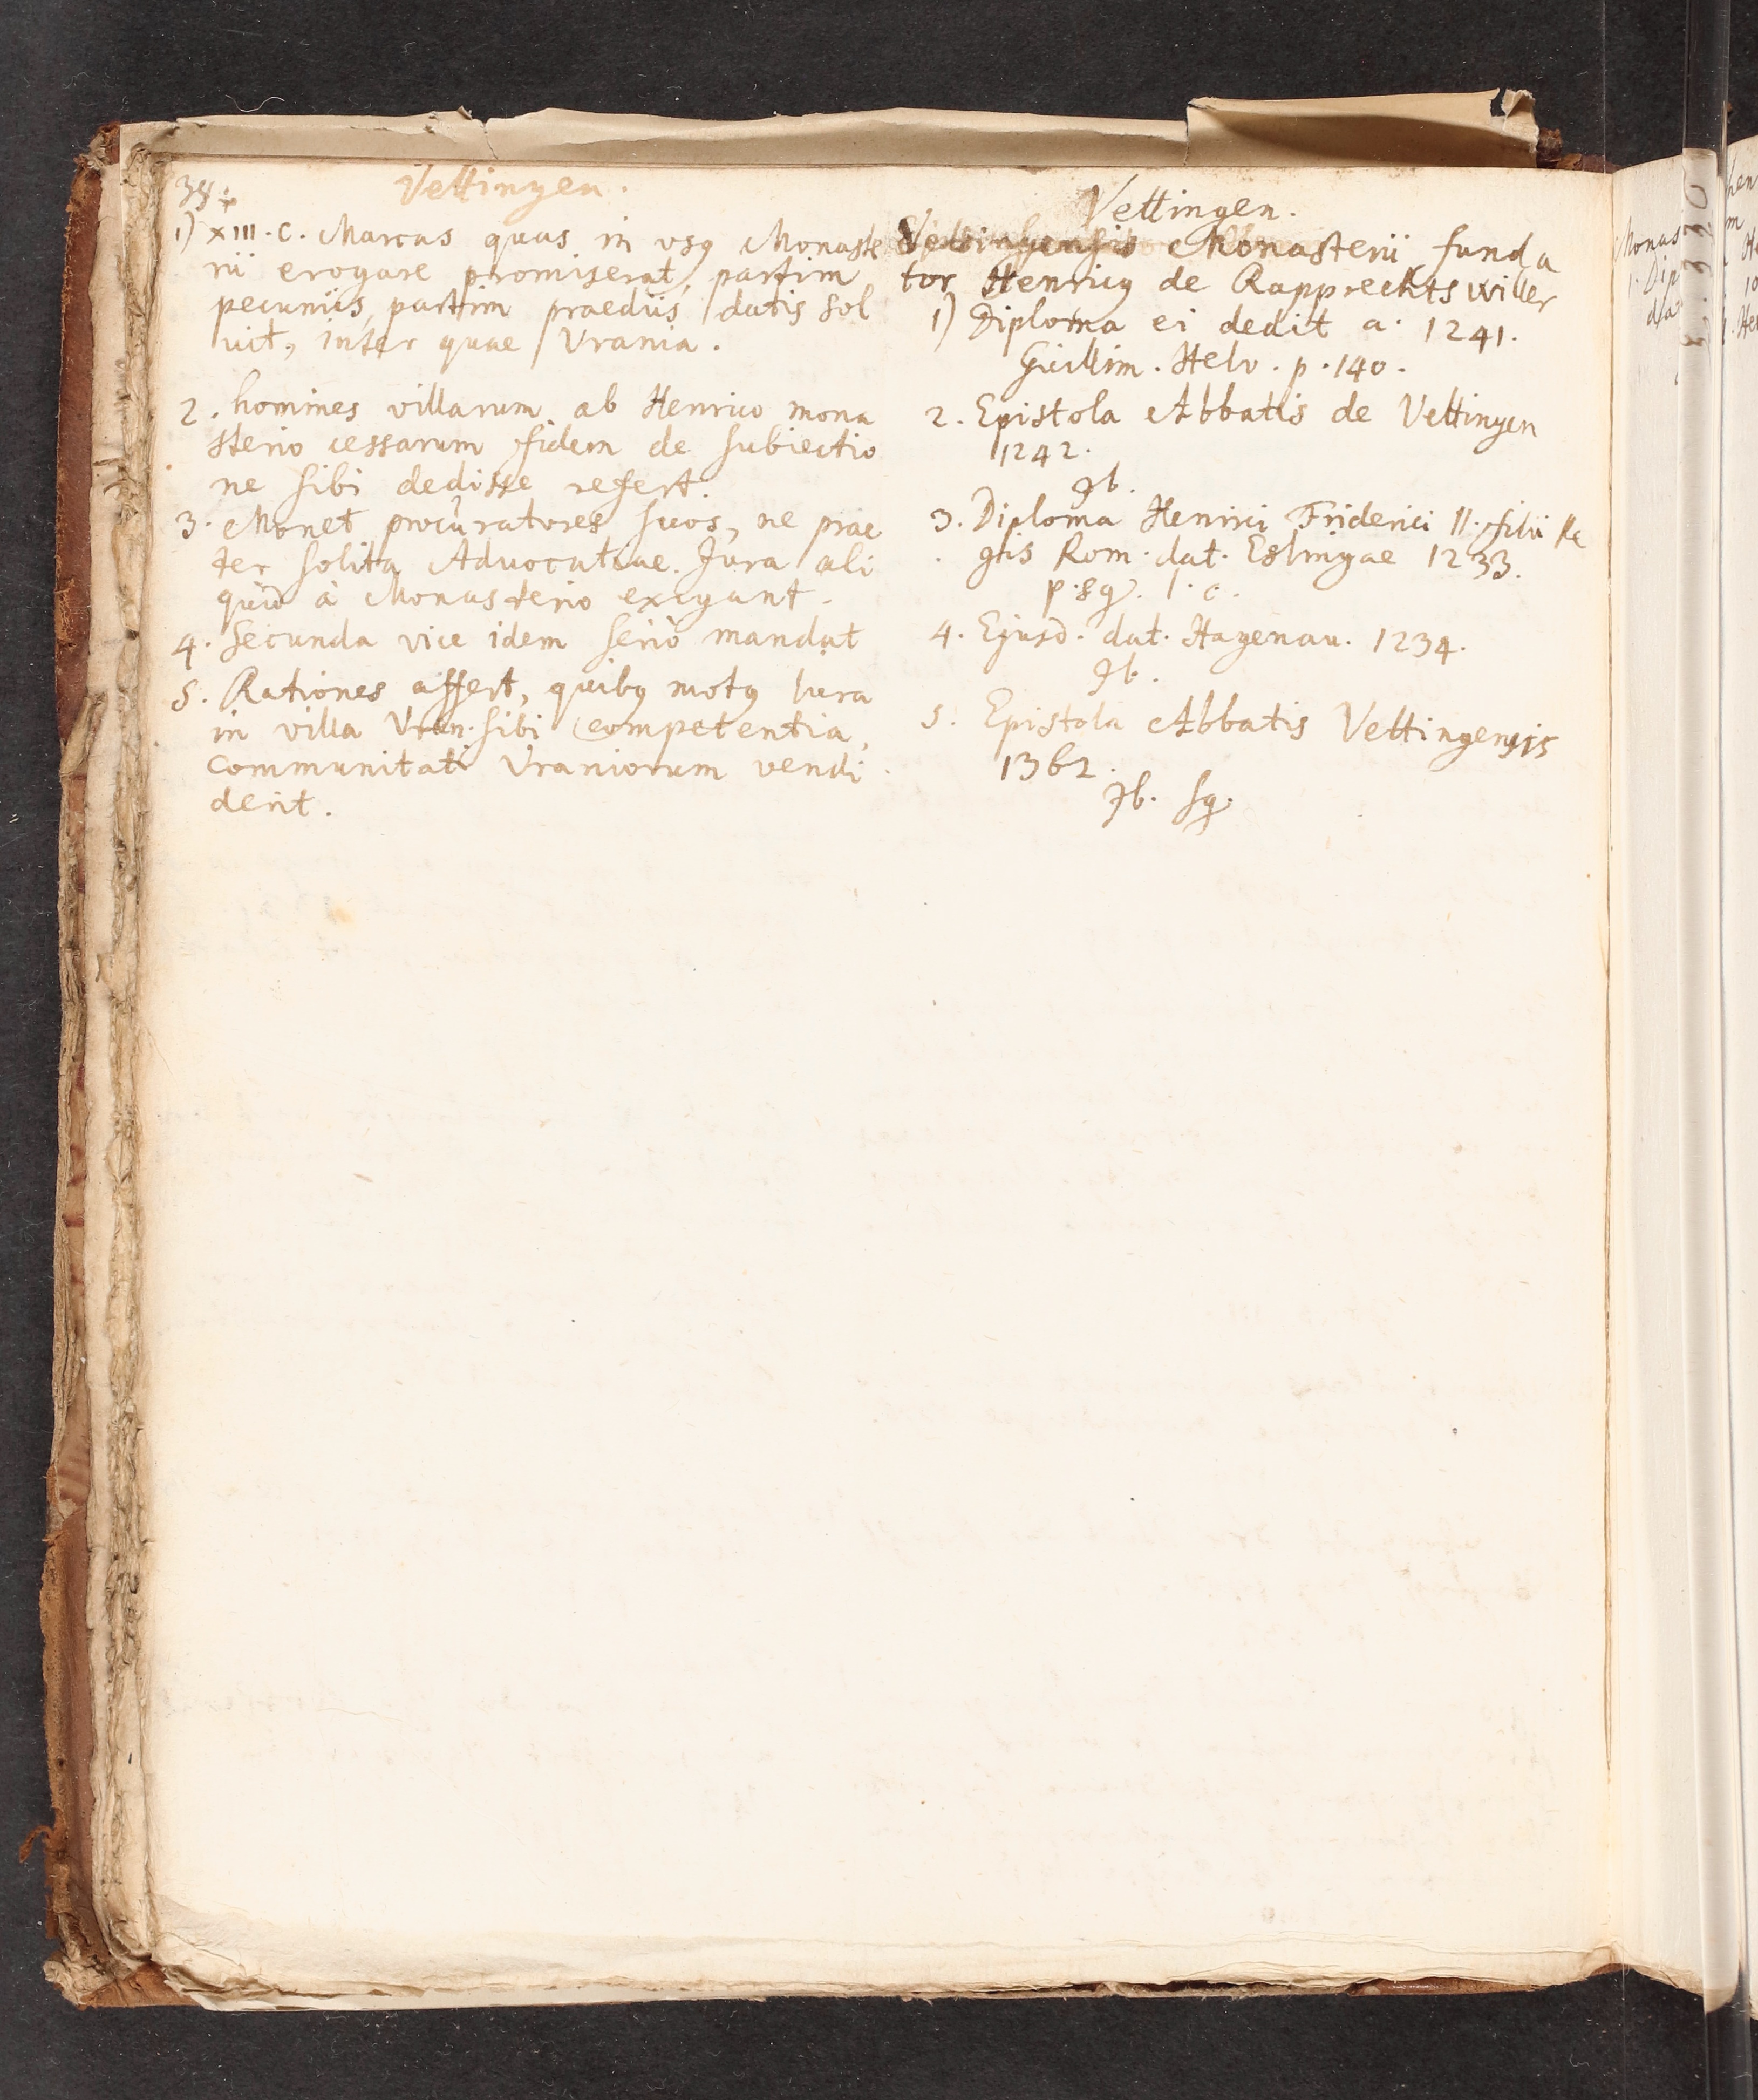 Vettingen.
1) XIII. C. Marcas quas in usq Monaste
rii erogare promiserat, partim
pecuniis, partim praediis datis sol
uit, inter quae Vrania.
2. homines villarum ab Henrico mona
sterio cessarum fidem de subiectio
ne sibi dedisse refert.
3. Monet procuratores suos, ne prae
ter solita Advocatiae Jura ali
quid à Monasterio exigant.
4. Secunda vice idem seriò mandat
5. Rationes affert, quibq motq Iura
in villa Vran. sibi competentia,
communitati Vraniorum vendi
derit.
Vettingen.
Vettingensis Monasterii funda
tor Henricq de Rapprechtswiller
1) Diploma ei dedit a. 1241.
Guillim. Helv. p. 140.
2. Epistola Abbatis de Vettingen
1242.
Ib.
3. Diploma Henrici Friderici II. filii Re
gis Rom. dat. Eslingae 1233.
p. sq. l. c.
4. Ejusd. dat. Hagenau. 1234.
Ib.
5. Epistola Abbatis Vettingensis
1362.
Ib. sq.